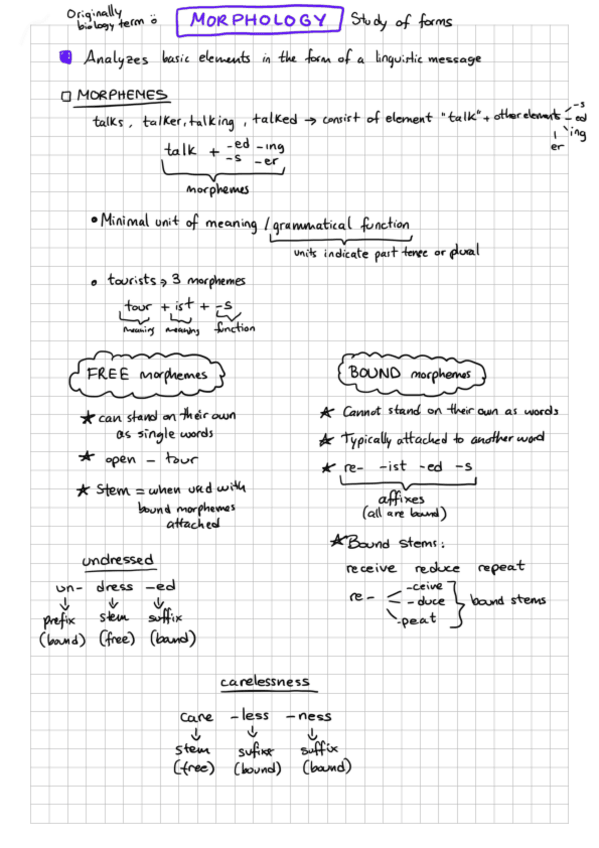 Originally
biology term ö
MORPHOLOGY Study of forms
Analyzes basic elements in the form of a linguistic message
MORPHEMES
talks, talker, talking, talked → consist of element "talk" + other elements -s
-ed
ing
er
talk + -ed -ing
-s -er
morphemes
• Minimal unit of meaning / grammatical function
units indicate past tense or plural
• tourists → 3 morphemes
tour + ist + -s
meaning meaning function
FREE morphemes
★ can stand on their own
as single words
★ open - tour
★ Stem = when used with
bound morphemes
attached
undressed
un- dress -ed
↓ ↓ ↓
prefix stem suffix
(bound) (free) (bound)
BOUND morphemes
★ Cannot stand on their own as words
★ Typically attached to another word
★ re- -ist -ed -s
affixes
(all are bound)
★ Bound stems:
receive reduce repeat
re- -ceive
-duce
-peat
bound stems
carelessness
care -less -ness
↓ ↓ ↓
stem sufixx suffix
(free) (bound) (bound)